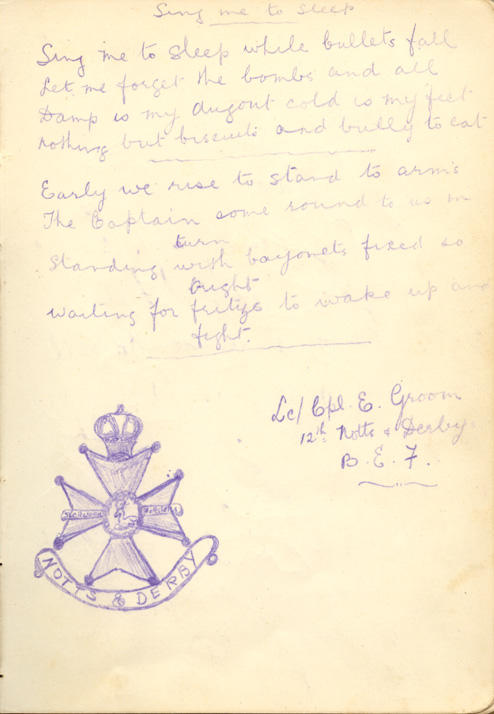 Sing me to Sleep
Sing me to Sleep while bullets fall
Let me forget the bombs and all
Damp is my dugout cold is my feet
nothing but biscuits and bully to eat
Early we rise to stand to arms
The Captain come round to us in
turn
Standing with bayonets fixed so
bright
waiting for fritzs to wake up and
fight.
Lc/Cpl. E. Groom
12th Notts & Derby
B. E. F.
NOTTS & DERBY